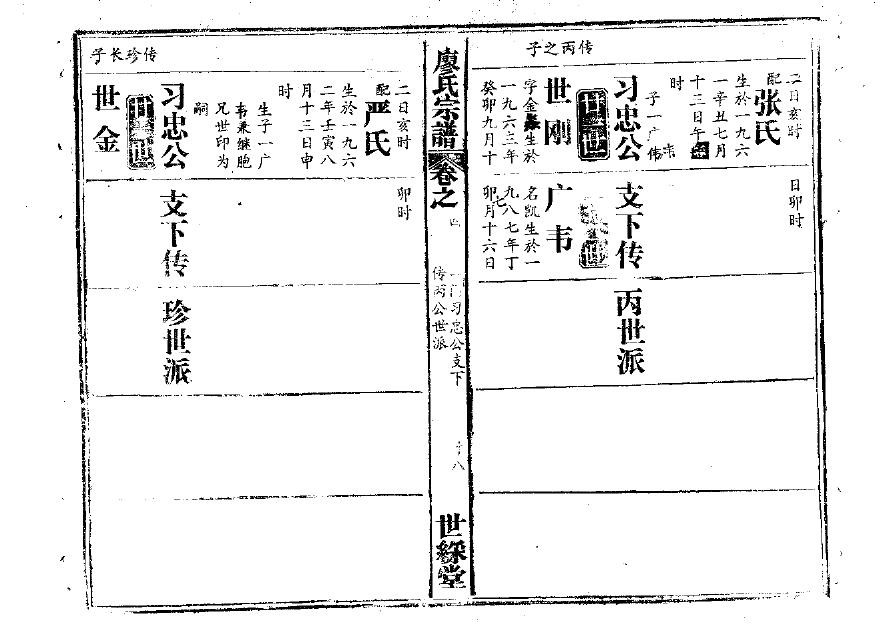 传丙之子
二日亥时
配张氏
生於一九六
一辛丑七月
十三日午
时
子一广
习忠公
世刚
字金
生於
一九六三年
癸卯九月十
日卯时
支下传
广韦
名凯生於一
九八七年丁
卯七月十六日
丙世派
廖氏宗譜
卷之
四
一门习忠公支下
传丙公世派
十八
世綵堂
传珍长子
二日亥时
配严氏
生於一九六
二年壬寅八
月十三日申
时
生子一广
韦承继胞
兄世印为
嗣
习忠公
世金
卯时
支下传
珍世派